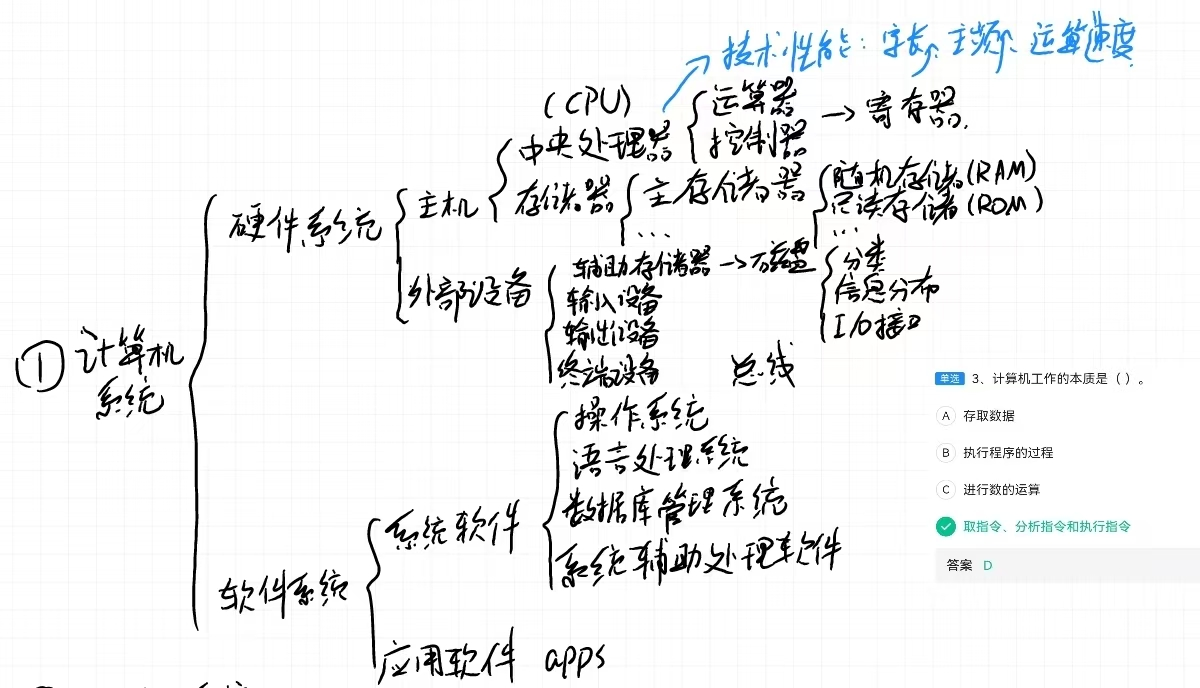 技术性能：字长、主频、运算速度
(CPU)
运算器
中央处理器
控制器
→寄存器
随机存储(RAM)
主存储器
存储器
只读存储(ROM)
主机
...
...
硬件系统
分类
辅助存储器→磁盘
外部设备
信息分布
输入设备
I/O接口
输出设备
①计算机
系统
终端设备
总线
单选 3、计算机工作的本质是（ ）。
A 存取数据
操作系统
B 执行程序的过程
语言处理系统
C 进行数的运算
数据库管理系统
系统软件
取指令、分析指令和执行指令
系统辅助处理软件
答案 D
软件系统
应用软件 apps